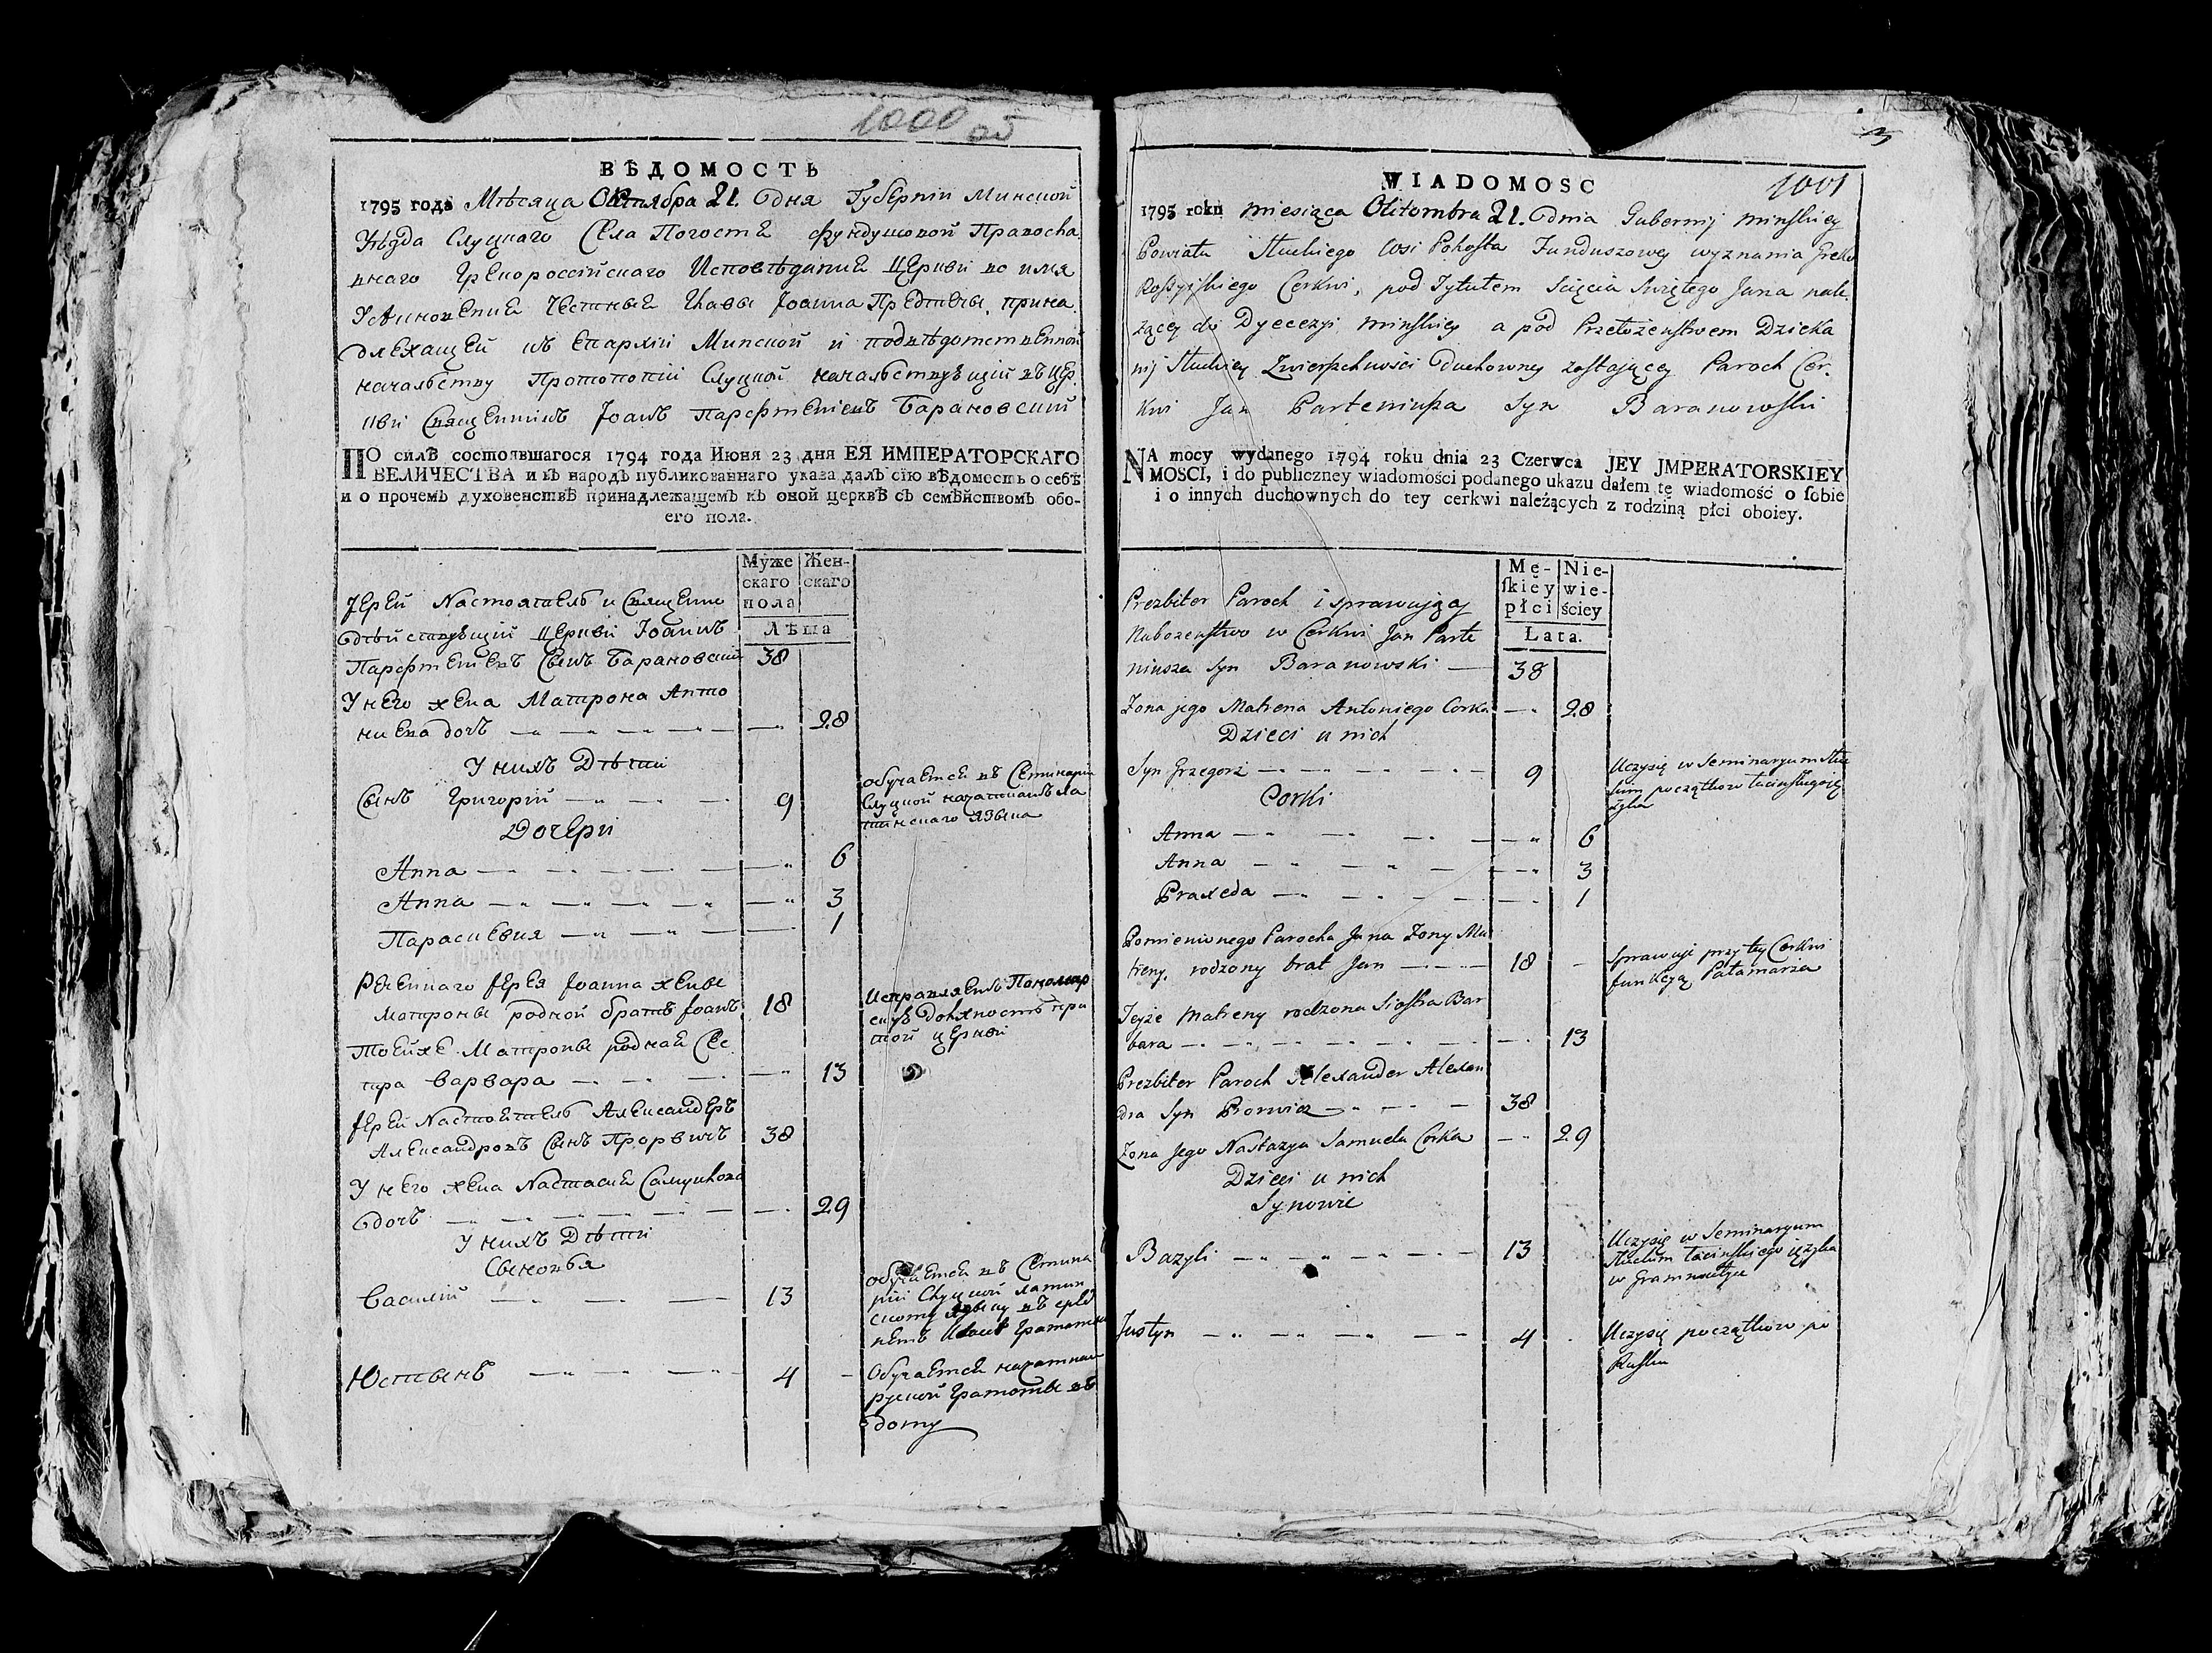 1000 об
ВѢДОМОСТЬ
1795 года Мѣсяца Октября 21. дня Губерніи Минской
Уѣзда Слуцкаго Села Погоста фундушовой Правосла
внаго Грекороссійскаго Исповѣданія Церкви во имя
Усѣкновенія Честныя Главы Іоанна Предтечы, прина
длежащей къ Епархіи Минской и подвѣдомственной
началству Протопопіи Слуцкой началствующій въ Цер
кви Священникъ Іоанъ Парфтеніевъ Барановскій
ПО силѣ состоявшагося 1794 года Июня 23 дня ЕЯ ИМПЕРАТОРСКАГО
ВЕЛИЧЕСТВА и въ народъ публикованнаго указа далъ сію вѣдомость о себѣ
и о прочемъ духовенствѣ принадлежащемъ къ оной церквѣ съ семѣйствомъ обо-
его пола.
Муже
скаго
пола
Жен-
скаго
Лѣта
Іерей Настоятель и Священно
дѣйствующій Церкви Іоаннъ
Парфтеніевъ Сынъ Барановскій 38
У него жена Матрона Анто
ниева дочъ 28
У нихъ Дѣти
Сынъ Григорій 9
обучается въ Семинаріи
Слуцкой началамъ ла
тинскаго языка
Дочери
Анна 6
Анна 3
Параскевия 1
Реченнаго Іерея Іоанна жены
Матроны родной братъ Іоанъ 18
Исправляетъ Пономар
скую должность при
той церкви
Тоейже Матроны родная Сес
тра Варвара 13
Іерей Настоятель Александеръ
Александровъ Сынъ Прорвичъ 38
У него жена Настасия Самуилова
дочъ 29
У нихъ Дѣти
Сыновья
Василій 13
обучается въ Семина
ріи Слуцкой латин
скому языку въ сред
немъ класѣ
Юстынъ 4
Обучается
руской грамоты въ
дому
1001
WIADOMOSC
1795 roku miesiąca Oktombra 21. dnia Gubernij Minskiey
Powiatu Słuckiego Wsi Pohosta Funduszowey wyznania Greko
Rossyiskiego Cerkwi, pod Tytułem Scięcia Swiętego Jana nale
żącey do Dyecezyi Minskiey a pod Przełozenstwem Dzieka
nij Słuckiey Zwierzchności Duchowney zostaiącey Paroch Cer
kwi Jan Parteniusza Syn Baranowski
NA mocy wydanego 1794 roku dnia 23 Czerwca JEY JMPERATORSKIEY
MOSCI, i do publiczney wiadomości podanego ukazu dałem tę wiadomość o sobie
i o innych duchownych do tey cerkwi należących z rodziną płci oboiey.
Mę-
skiey
płci
Nie-
wie-
ściey
Lata.
Prezbiter Paroch i sprawuiący
Nabozenstwo w Cerkwi Jan Parte
niusza Syn Baranowski 38
Zona jego Matrena Antoniego Corka 28
Dzieci u nich
Syn Grzegorz 9
Uczysię w Seminaryum Słuc
kim początkow łacinskiego ię
zyka
Corki
Anna 6
Anna 3
Praxeda 1
Pomienionego Parocha Jana Zony Ma
treny, rodzony brat Jan 18
Sprawuie przy tey Cerkwi
funkcyą Pałamarza
Teyże Matreny rodzona Siostra Bar
bara 13
Prezbiter Paroch Alexander Alexan
dra Syn Prorwicz 38
Zona Jego Nastazya Samuela Corka 29
Dzieci u nich
Synowie
Bazyli 13
Uczysię w Seminaryum
Słuckim łacinskiego ięzyka
w Grammatyce
Justyn 4
Uczysię początkow po
Rusku